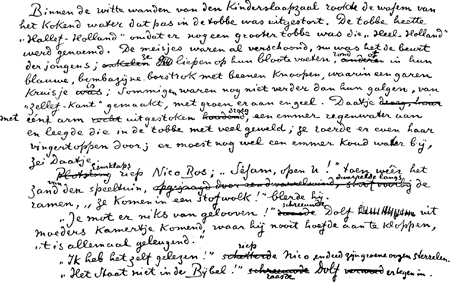 Binnen de witte wanden van den Kinderslaapzaal rookte de wasem van
het Kokend water dat pas in de tobbe was uitgestort. De tobbe heette
„Hallef-Holland" omdat er nog een grooter tobbe was die „Heel-Holland"
werd genoemd. De meisjes waren al verschoond, nu was het de beurt
der jongens; ze liepen op hun bloote voeten, rond of in hun
blauwe, bombazijne borstrok met beenen Knoopen, waarin een garen
Kruisje is; Sommigen waren nog niet verder dan hun galgen, van
„zellef-Kant" gemaakt, met groen er aan en geel. Daatje
met één arm uitgestoken droeg een emmer regenwater aan
en leegde die in de tobbe met veel geweld; ze roerde er even haar
vingertoppen door; er moest nog wel een emmer Koud water bij,
zei Daatje.
Eensklaps
riep Nico Bos; „Sesam, open u!" toen wees het
zand den speeltuin, dwarrelde langs
ramen, „ze Komen in een stofwolk!" blerde hij.
schreeuwde
„Je mot er niks van gelooven!" Dolf uit
moeders Kamertje Komend, waar hij nooit hoefde aan te kloppen,
„'t is allemaal geleugend."
riep
„Ik heb het zelf gelezen!" Nico en deed zijn groene oogen sterrelen.
„Het Staat niet in de Bijbel!" schreeuwde Dolf er legen in.
raasde